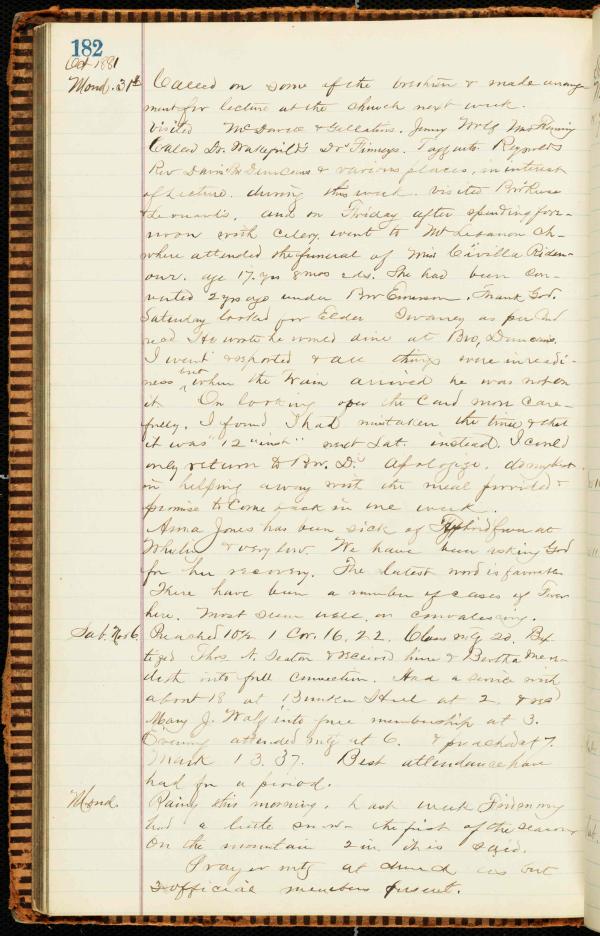 182
Oct 1881
Mond. 31st Called on some of the brethren & made arrange-
ment for lecture at the church next week.
Visited McDavid & Gallatins. Jenny Wolf Mrs
Called Dr. Dr Finneys. Taggarts. Reynolds
Rev Davis & various places, in interest
of Lecture. during this week visited
and on Friday after spending fore-
noon with went to Mt Lebanon Ch-
where attended the funeral of Miss Riden-
our. age 17. yrs 8 mos eds. She had been con-
verted 2 yrs ago under Bro Emerson. Thank God.
Saturday looked for Elder Swaney as per
He wrote he would dine at Bro, Duncans.
I went & reported & all things were in readi-
ness but when the train arrived he was not on
it. On looking over the Card more care-
fully. I found I had mistaken the time & that
it was "12 "inst" next Sat. instead. I could
only return to Bro. D.'s Apologize. do my best
in helping away with the meal provided &
promise to come back in one week.
Anna Jones has been sick of Typhoid fever at
& very low. We have been asking God
for her recovery. The latest word is favorable
There have been a number of cases of Fever
here. Most seem well, or convalescing.
Sab. Nov 6. Preached 10½ 1 Cor. 16, 22. Class mtg 20. Bap-
tized Thos N. Seaton & received him & Bertha Mere-
dith into full connection. Had a service with
about 18 at Bunker Hill at 2. & rec'd
Mary J. Wolf into free membership at 3.
Evening attended mtg at 6. & preached 7.
Mark 13.37. Best attendance have
had for a period.
Mond. Rainy this morning. Last week Friday my
had a little snow the first of the season
On the mountain 2 in. it is said.
Prayer mtg at church cos but
2 official members present.